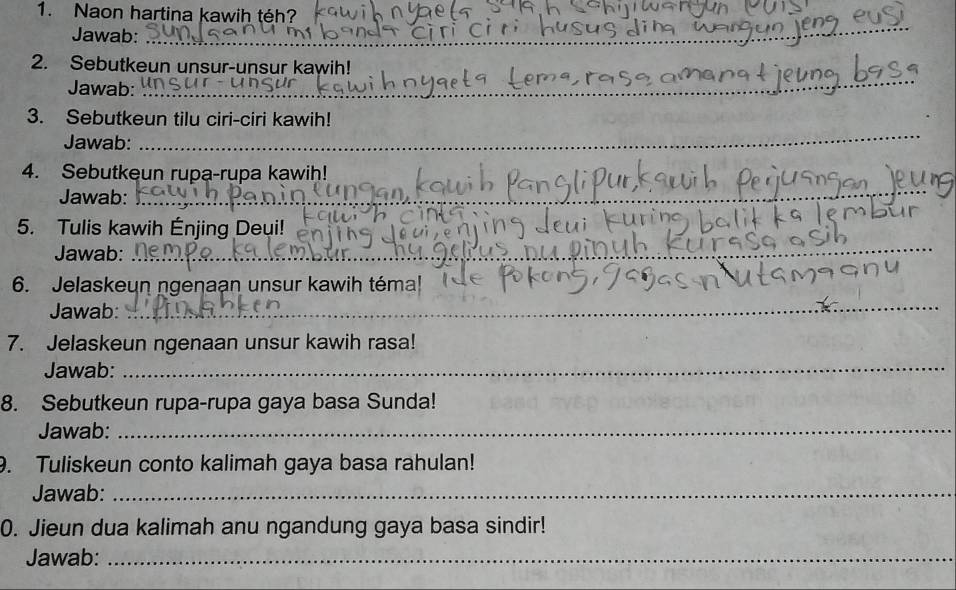 1. Naon hartina kawih téh? kawih nyaeta salah sahiji wangun puisi
Jawab: Sunda anu mibanda ciri ciri husus dina wangun jeng eusi
2. Sebutkeun unsur-unsur kawih!
Jawab: unsur-unsur kawih nyaeta tema, rasa, amanat jeung basa
3. Sebutkeun tilu ciri-ciri kawih!
Jawab:
4. Sebutkeun rupa-rupa kawih!
Jawab: kawih panineungan, kawih Panglipur, kawih Perjuangan jeung
kawih cinta
5. Tulis kawih Énjing Deui! enjing deui, enjing deui kuring balik ka lembur
Jawab: nempo ka lembur nu gelius nu pinuh ku rasa asih
6. Jelaskeun ngenaan unsur kawih téma! ide pokok, gagasan utama anu
Jawab: dipindahken
7. Jelaskeun ngenaan unsur kawih rasa!
Jawab:
8. Sebutkeun rupa-rupa gaya basa Sunda!
Jawab:
9. Tuliskeun conto kalimah gaya basa rahulan!
Jawab:
0. Jieun dua kalimah anu ngandung gaya basa sindir!
Jawab: